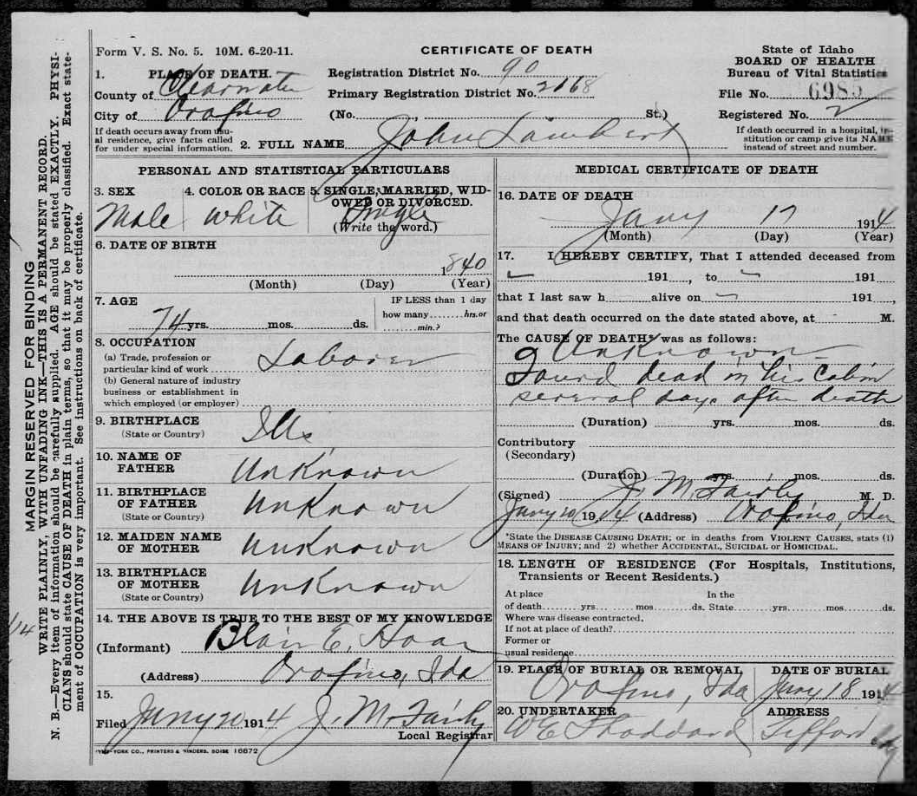 Form V. S. No. 5. 10M. 6-20-11.
CERTIFICATE OF DEATH
State of Idaho
BOARD OF HEALTH
Bureau of Vital Statistics
File No. 6985
Registered No. 2
If death occurred in a hospital, institution or camp give its NAME instead of street and number.
1. PLACE OF DEATH.
County of Clearwater
City of Orofino
If death occurs away from usual residence, give facts called for under special information.
Registration District No. 90
Primary Registration District No. 2168
(No. St.)
2. FULL NAME John Lambert
PERSONAL AND STATISTICAL PARTICULARS
3. SEX
Male
4. COLOR OR RACE
White
5. SINGLE, MARRIED, WIDOWED OR DIVORCED.
Single
(Write the word.)
6. DATE OF BIRTH
1840
(Month) (Day) (Year)
7. AGE
74 yrs. mos. ds.
IF LESS than 1 day
how many hrs. or
min.?
8. OCCUPATION
(a) Trade, profession or particular kind of work Laborer
(b) General nature of industry business or establishment in which employed (or employer)
9. BIRTHPLACE
(State or Country) Ills
10. NAME OF FATHER Unknown
11. BIRTHPLACE OF FATHER Unknown
(State or Country)
12. MAIDEN NAME OF MOTHER Unknown
13. BIRTHPLACE OF MOTHER Unknown
(State or Country)
14. THE ABOVE IS TRUE TO THE BEST OF MY KNOWLEDGE
(Informant) Blair E. Hoar
(Address) Orofino, Ida
15.
Filed Jany 20 1914 J. M. Fairly
Local Registrar
MEDICAL CERTIFICATE OF DEATH
16. DATE OF DEATH
Jany 17 1914
(Month) (Day) (Year)
17. I HEREBY CERTIFY, That I attended deceased from
191 , to 191
that I last saw h alive on 191 ,
and that death occurred on the date stated above, at M.
The CAUSE OF DEATH* was as follows:
Unknown
Found dead in his Cabin
several days after death
(Duration) yrs. mos. ds.
Contributory
(Secondary)
(Duration) yrs. mos. ds.
(Signed) J. M. Fairly M. D.
Jany 20 1914 (Address) Orofino, Ida
*State the DISEASE CAUSING DEATH; or in deaths from VIOLENT CAUSES, state (1)
MEANS OF INJURY; and 2) whether ACCIDENTAL, SUICIDAL or HOMICIDAL.
18. LENGTH OF RESIDENCE (For Hospitals, Institutions,
Transients or Recent Residents.)
At place of death yrs. mos. ds. In the State yrs. mos. ds.
Where was disease contracted.
If not at place of death?
Former or
usual residence
19. PLACE OF BURIAL OR REMOVAL
Orofino, Ida
DATE OF BURIAL
Jany 18, 1914
20. UNDERTAKER
ADDRESS
MARGIN RESERVED FOR BINDING
WRITE PLAINLY, WITH UNFADING INK—THIS IS A PERMANENT RECORD.
N. B.—Every item of information should be carefully supplied. AGE should be stated EXACTLY. PHYSI-
CIANS should state CAUSE OF DEATH in plain terms, so that it may be properly classified. Exact state-
ment of OCCUPATION is very important. See instructions on back of certificate.